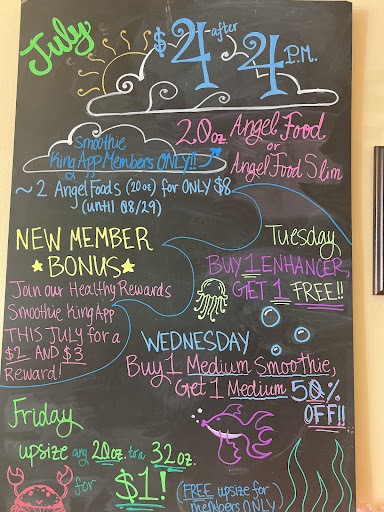 July
$4 after 4 P.M.
20oz Angel Food
or
Angel Food Slim
Smoothie
King App Members ONLY!!
~ 2 Angel Foods (20oz) for ONLY $8
(until 08/29)
NEW MEMBER
BONUS
Join our Healthy Rewards
Smoothie King App
THIS JULY for a
$2 AND $3
Reward!
Tuesday
BUY 1 ENHANCER,
GET 1 FREE!!
WEDNESDAY
Buy 1 Medium Smoothie,
Get 1 Medium 50%
OFF!!
Friday
upsize any 20oz. to a 32oz.
for $1!
(FREE upsize for
members ONLY)